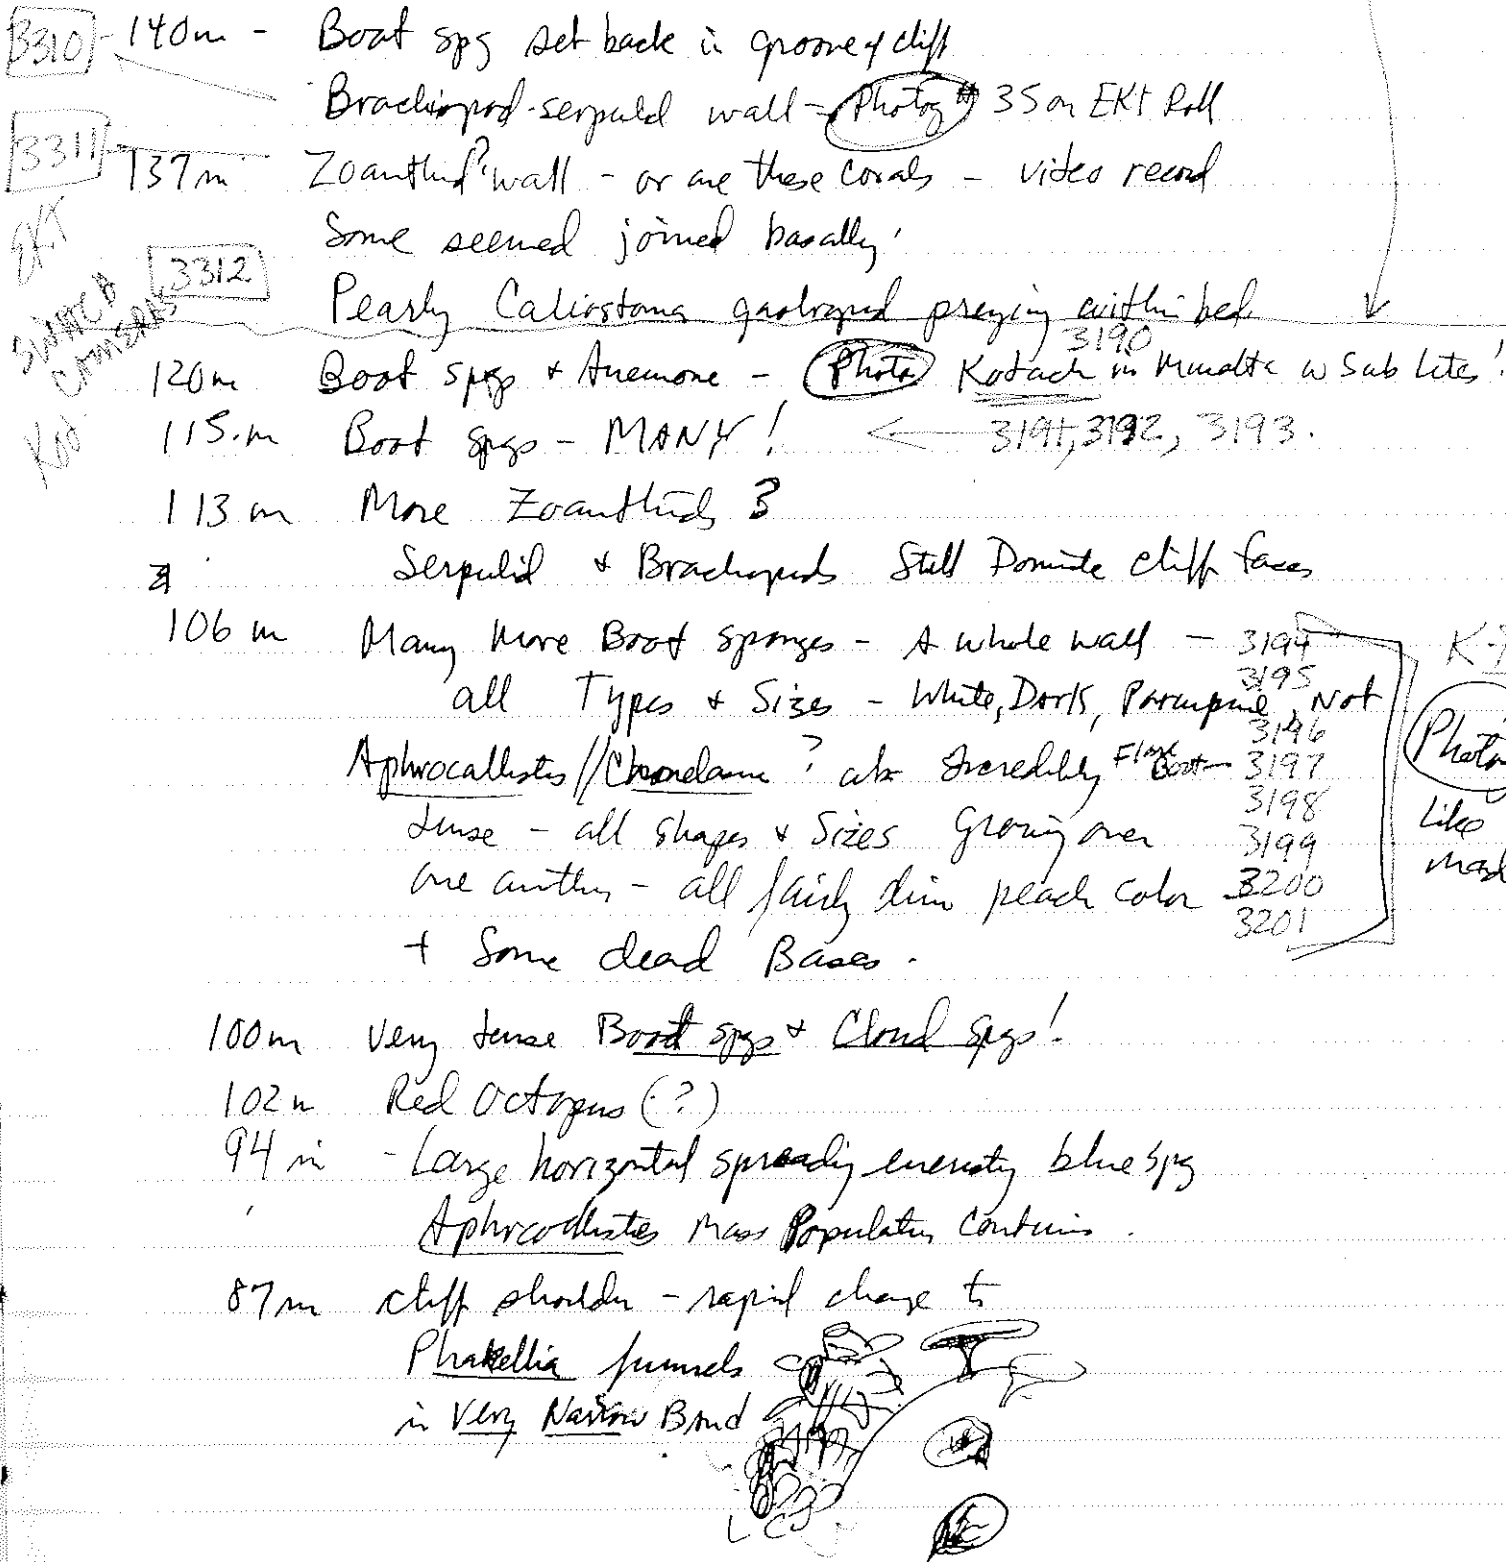 3310 - 140m - Boot spg set back in groove of cliff
Brachiopod-serpulid wall - Photog # 35 on EKT Roll
3311
137m Zoanthid? wall - or are these corals - video record
Some seemed joined basally!
EKT
3312
Pearly Caliostoma gastropod preying within bed.
SWITCH CAMERAS
3190
120m Boot spgs + Anemone - Photo Kodach in Minolta w Sub Lites!
115.m Boot spgs - MANY! ← 3191, 3192, 3193.
113m More Zoanthids ?
Serpulid + Brachiopods Still Domite cliff faces
106m Many More Boot sponges - A whole wall - 3194
3195
all Types + Sizes - White, Dark, Porcupine, Not
3196
Aphrocallistes // ? Incredibly Boot - 3197
3198
dense - all shapes + sizes Growing over 3199
Photo
Like
one another - all fairly dim peach color 3200
3201
+ Some dead Bases.
100m Very dense Boot spgs + Cloud Spgs!
102m Red Octopus (?)
94m - Large horizontal spreading encrusty blue spg
Aphrocallistes Mass Population Continues.
87m cliff shoulder - rapid change to
Phakellia funnels
in Very Narrow Band